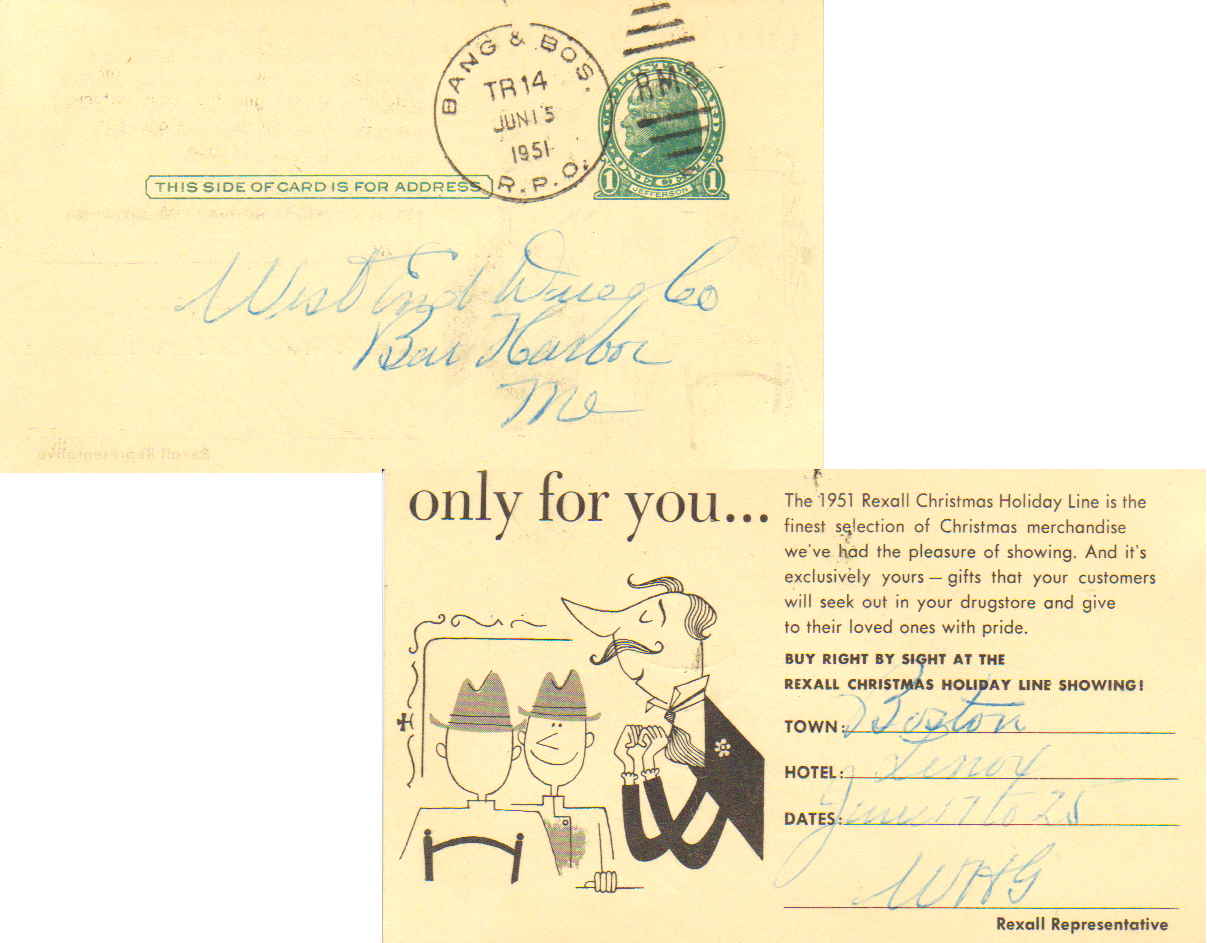 BANG & BOS.
TR 14
JUN 15
1951
R.P.O.
RMS
U.S. POSTAL CARD
1 ONE CENT 1
JEFFERSON
THIS SIDE OF CARD IS FOR ADDRESS
West End Drug Co
Bar Harbor
Me
only for you...
The 1951 Rexall Christmas Holiday Line is the
finest selection of Christmas merchandise
we've had the pleasure of showing. And it's
exclusively yours — gifts that your customers
will seek out in your drugstore and give
to their loved ones with pride.
BUY RIGHT BY SIGHT AT THE
REXALL CHRISTMAS HOLIDAY LINE SHOWING!
TOWN: Boston
HOTEL: Lenox
DATES: June 17 to 25
WHG
Rexall Representative